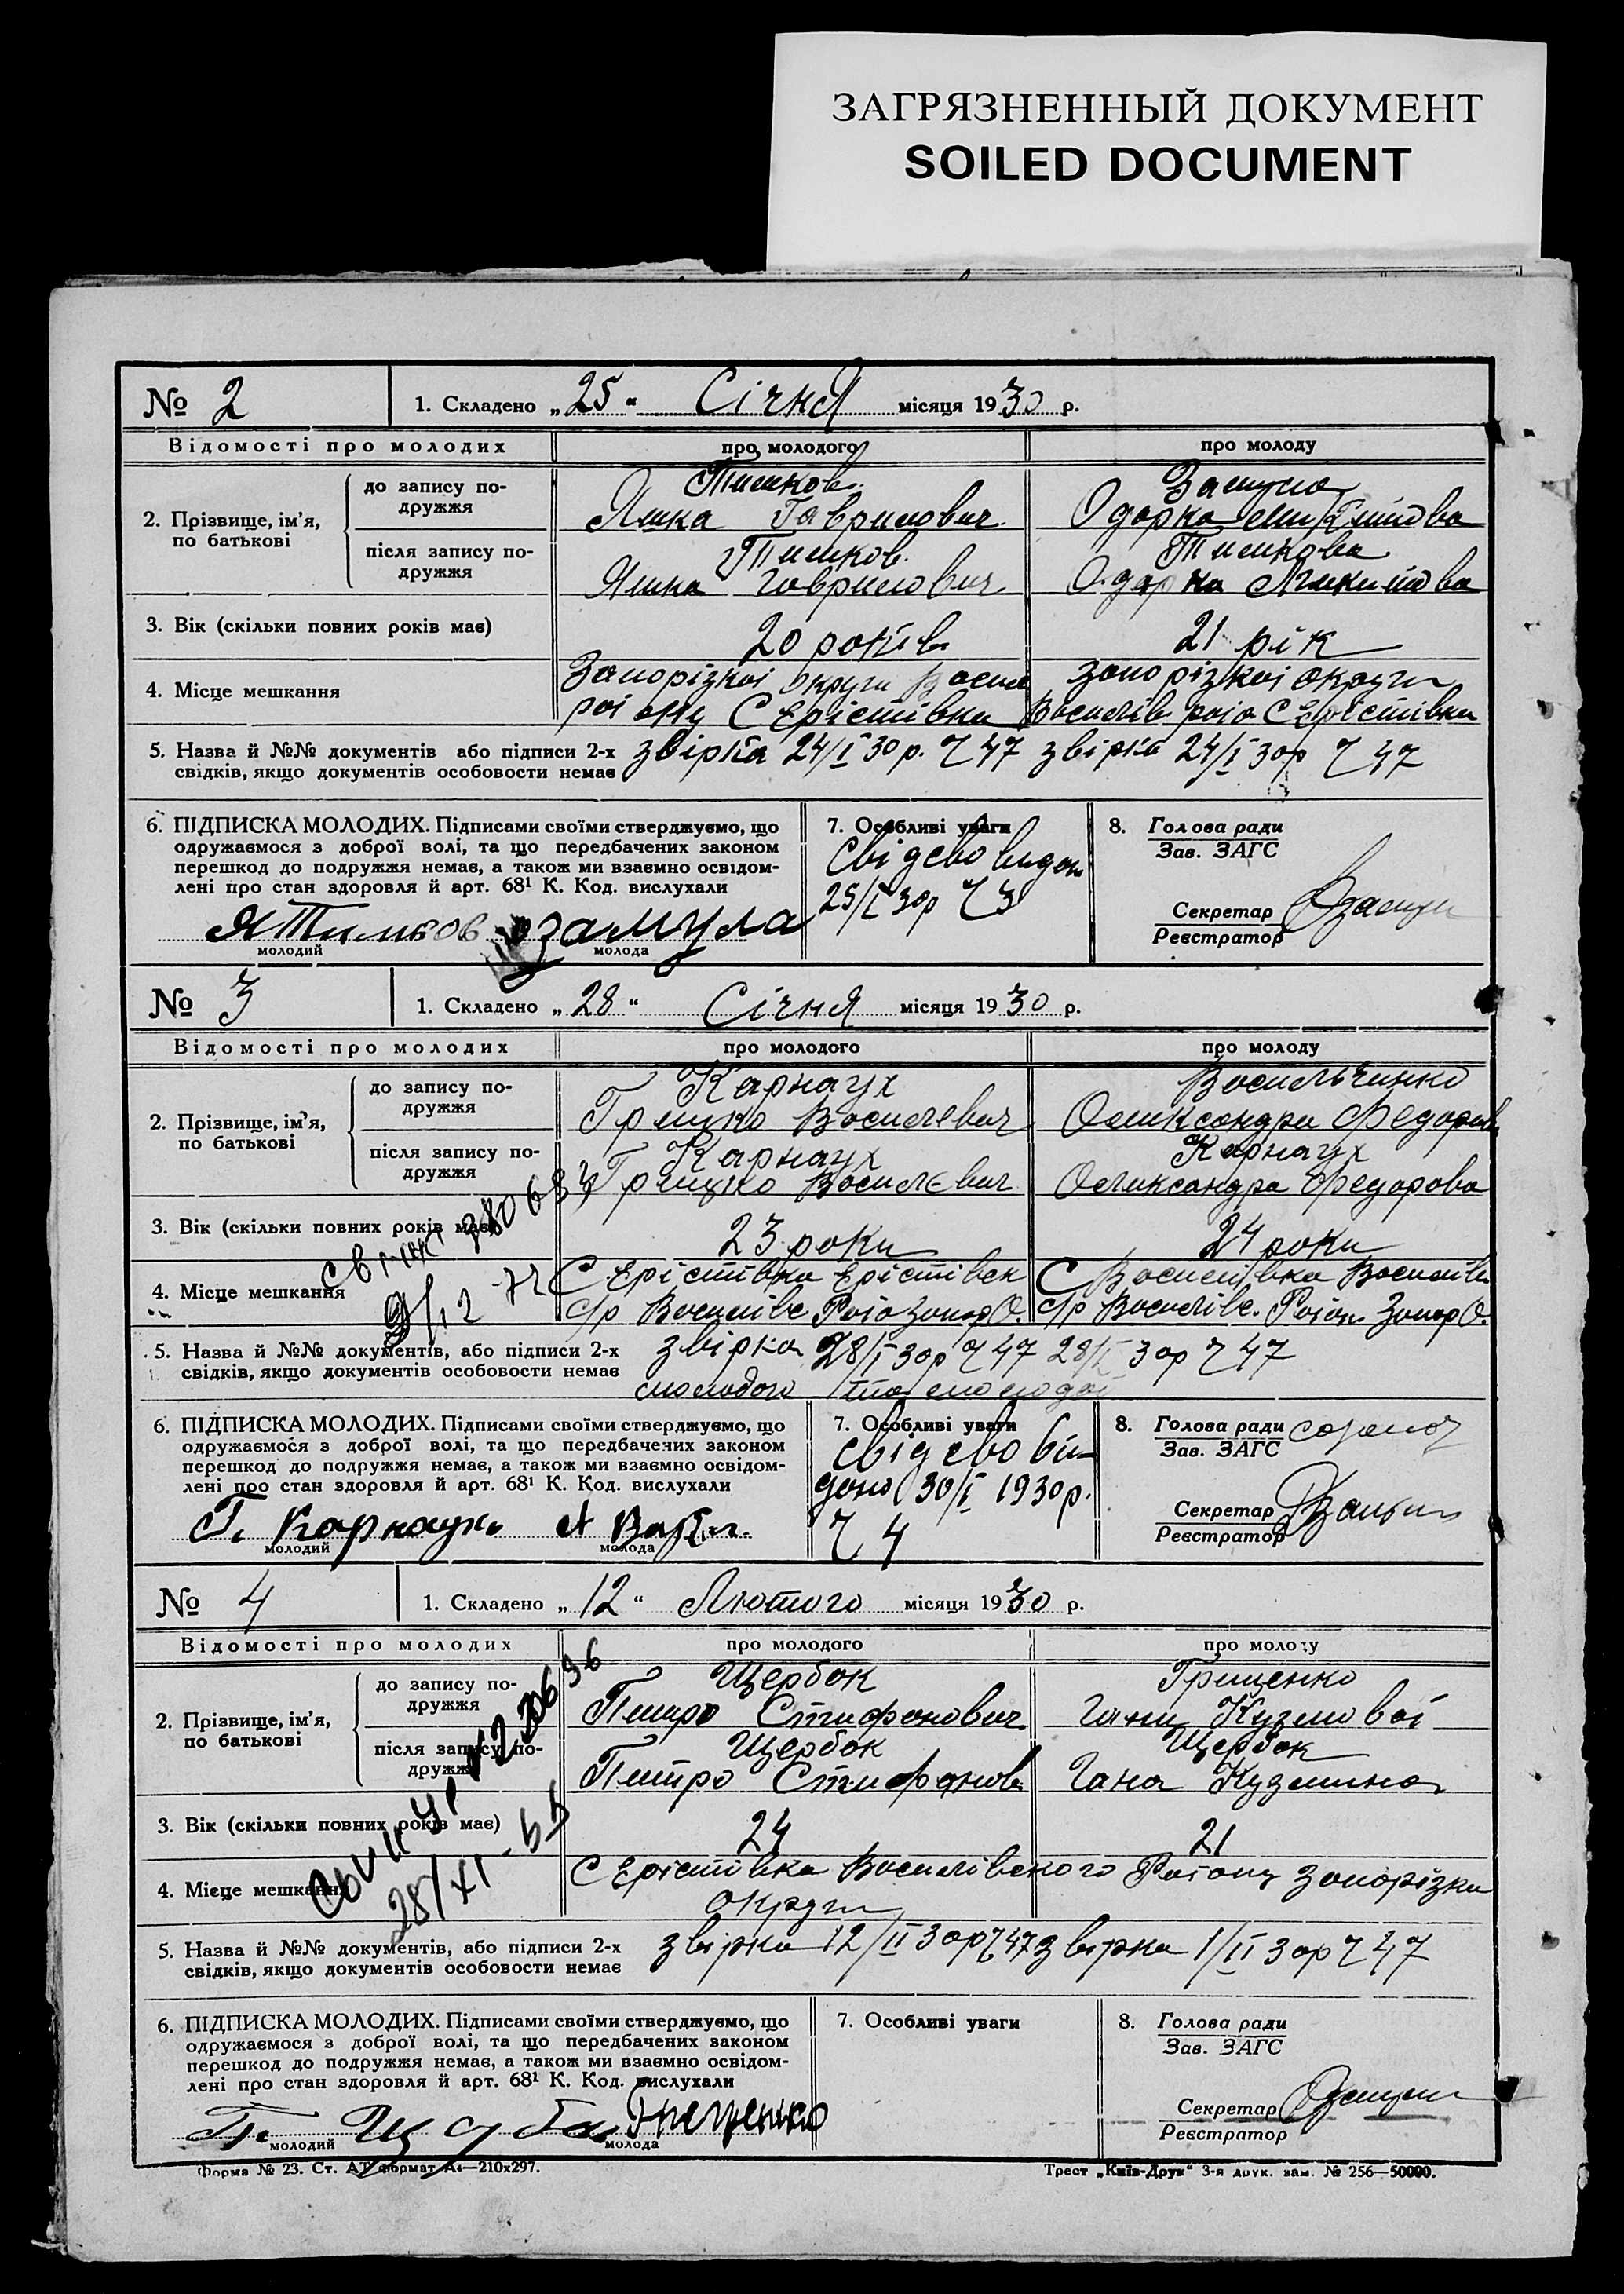 ЗАГРЯЗНЕННЫЙ ДОКУМЕНТ
SOILED DOCUMENT
№ 2
1. Складено „25“ Січня місяця 1930 р.
Відомості про молодих
про молодого
про молоду
2. Прізвище, ім’я, по батькові
до запису подружжя
Тимков
Яшка Гаврилович
Замула
Одарка Микитова
після запису подружжя
Тимков
Яшка Гаврилович
Тимкова
Одарка Микитова
3. Вік (скільки повних років має)
20 років
21 рік
4. Місце мешкання
Запорізкоі округи Васил
раіону С Ерістівка
Запорізкоі округи
Василів раіо С Ерістівка
5. Назва й №№ документів або підписи 2-х
свідків, якщо документів особовости немає
звірка 24/I 30 р. Ч 47 звірка 24/I 30р Ч 47
6. ПІДПИСКА МОЛОДИХ. Підписами своїми стверджуємо, що
одружаємося з доброї волі, та що передбачених законом
перешкод до подружжя немає, а також ми взаємно освідом-
лені про стан здоровля й арт. 68¹ К. Код. вислухали
Я Тимков
замула
молодий
молода
7. Особливі уваги
Свідсво видан
25/I 30р Ч 3
8. Голова ради
Зав. ЗАГС
Секретар
Реєстратор
№ 3
1. Складено „28“ Січня місяця 1930 р.
Відомості про молодих
про молодого
про молоду
2. Прізвище, ім’я, по батькові
до запису подружжя
Карнаух
Грицко Василевич
Васильченко
Олександра Федорів
після запису подружжя
Карнаух
Грицко Василєвич
Карнаух
Олександра Федорова
3. Вік (скільки повних років має)
23 роки
24 роки
4. Місце мешкання
9/12 -72
С Ерістівка Ерістівск
с/р Василівс Раіо Запор О.
С Василівка Василів
с/р Василівс. Раіон Запор О.
5. Назва й №№ документів, або підписи 2-х
свідків, якщо документів особовости немає
звірка 28/I 30р Ч 47 28/I 30р Ч 47
молодого та молодоі
6. ПІДПИСКА МОЛОДИХ. Підписами своїми стверджуємо, що
одружаємося з доброї волі, та що передбачених законом
перешкод до подружжя немає, а також ми взаємно освідом-
лені про стан здоровля й арт. 68¹ К. Код. вислухали
Г. Карнаух
молодий
молода
7. Особливі уваги
свідсво ви-
дано 30/I 1930р.
Ч 4
8. Голова ради
Зав. ЗАГС
Секретар
Реєстратор
№ 4
1. Складено „12“ Лютого місяця 1930 р.
Відомості про молодих
про молодого
про молоду
2. Прізвище, ім’я, по батькові
до запису подружжя
Щербак
Петро Стифанович
Грищенко
Гани Кузмовоі
після запису подружжя
Щербак
Петро Стифанов
Щербак
Гана Кузмина
3. Вік (скільки повних років має)
24
21
4. Місце мешкання
28/XI-
С Ерістівка Василівского Раіону Запорізки
округи
5. Назва й №№ документів, або підписи 2-х
свідків, якщо документів особовости немає
звірка 12/II 30р Ч 47 звірка 1/II 30р Ч 47
6. ПІДПИСКА МОЛОДИХ. Підписами своїми стверджуємо, що
одружаємося з доброї волі, та що передбачених законом
перешкод до подружжя немає, а також ми взаємно освідом-
лені про стан здоровля й арт. 68¹ К. Код. вислухали
молодий
молода
7. Особливі уваги
8. Голова ради
Зав. ЗАГС
Секретар
Реєстратор
Форма № 23. Ст. АТ формат А4—210х297.
Трест „Київ-Друк“ 3-я друк. зам. № 256—50000.